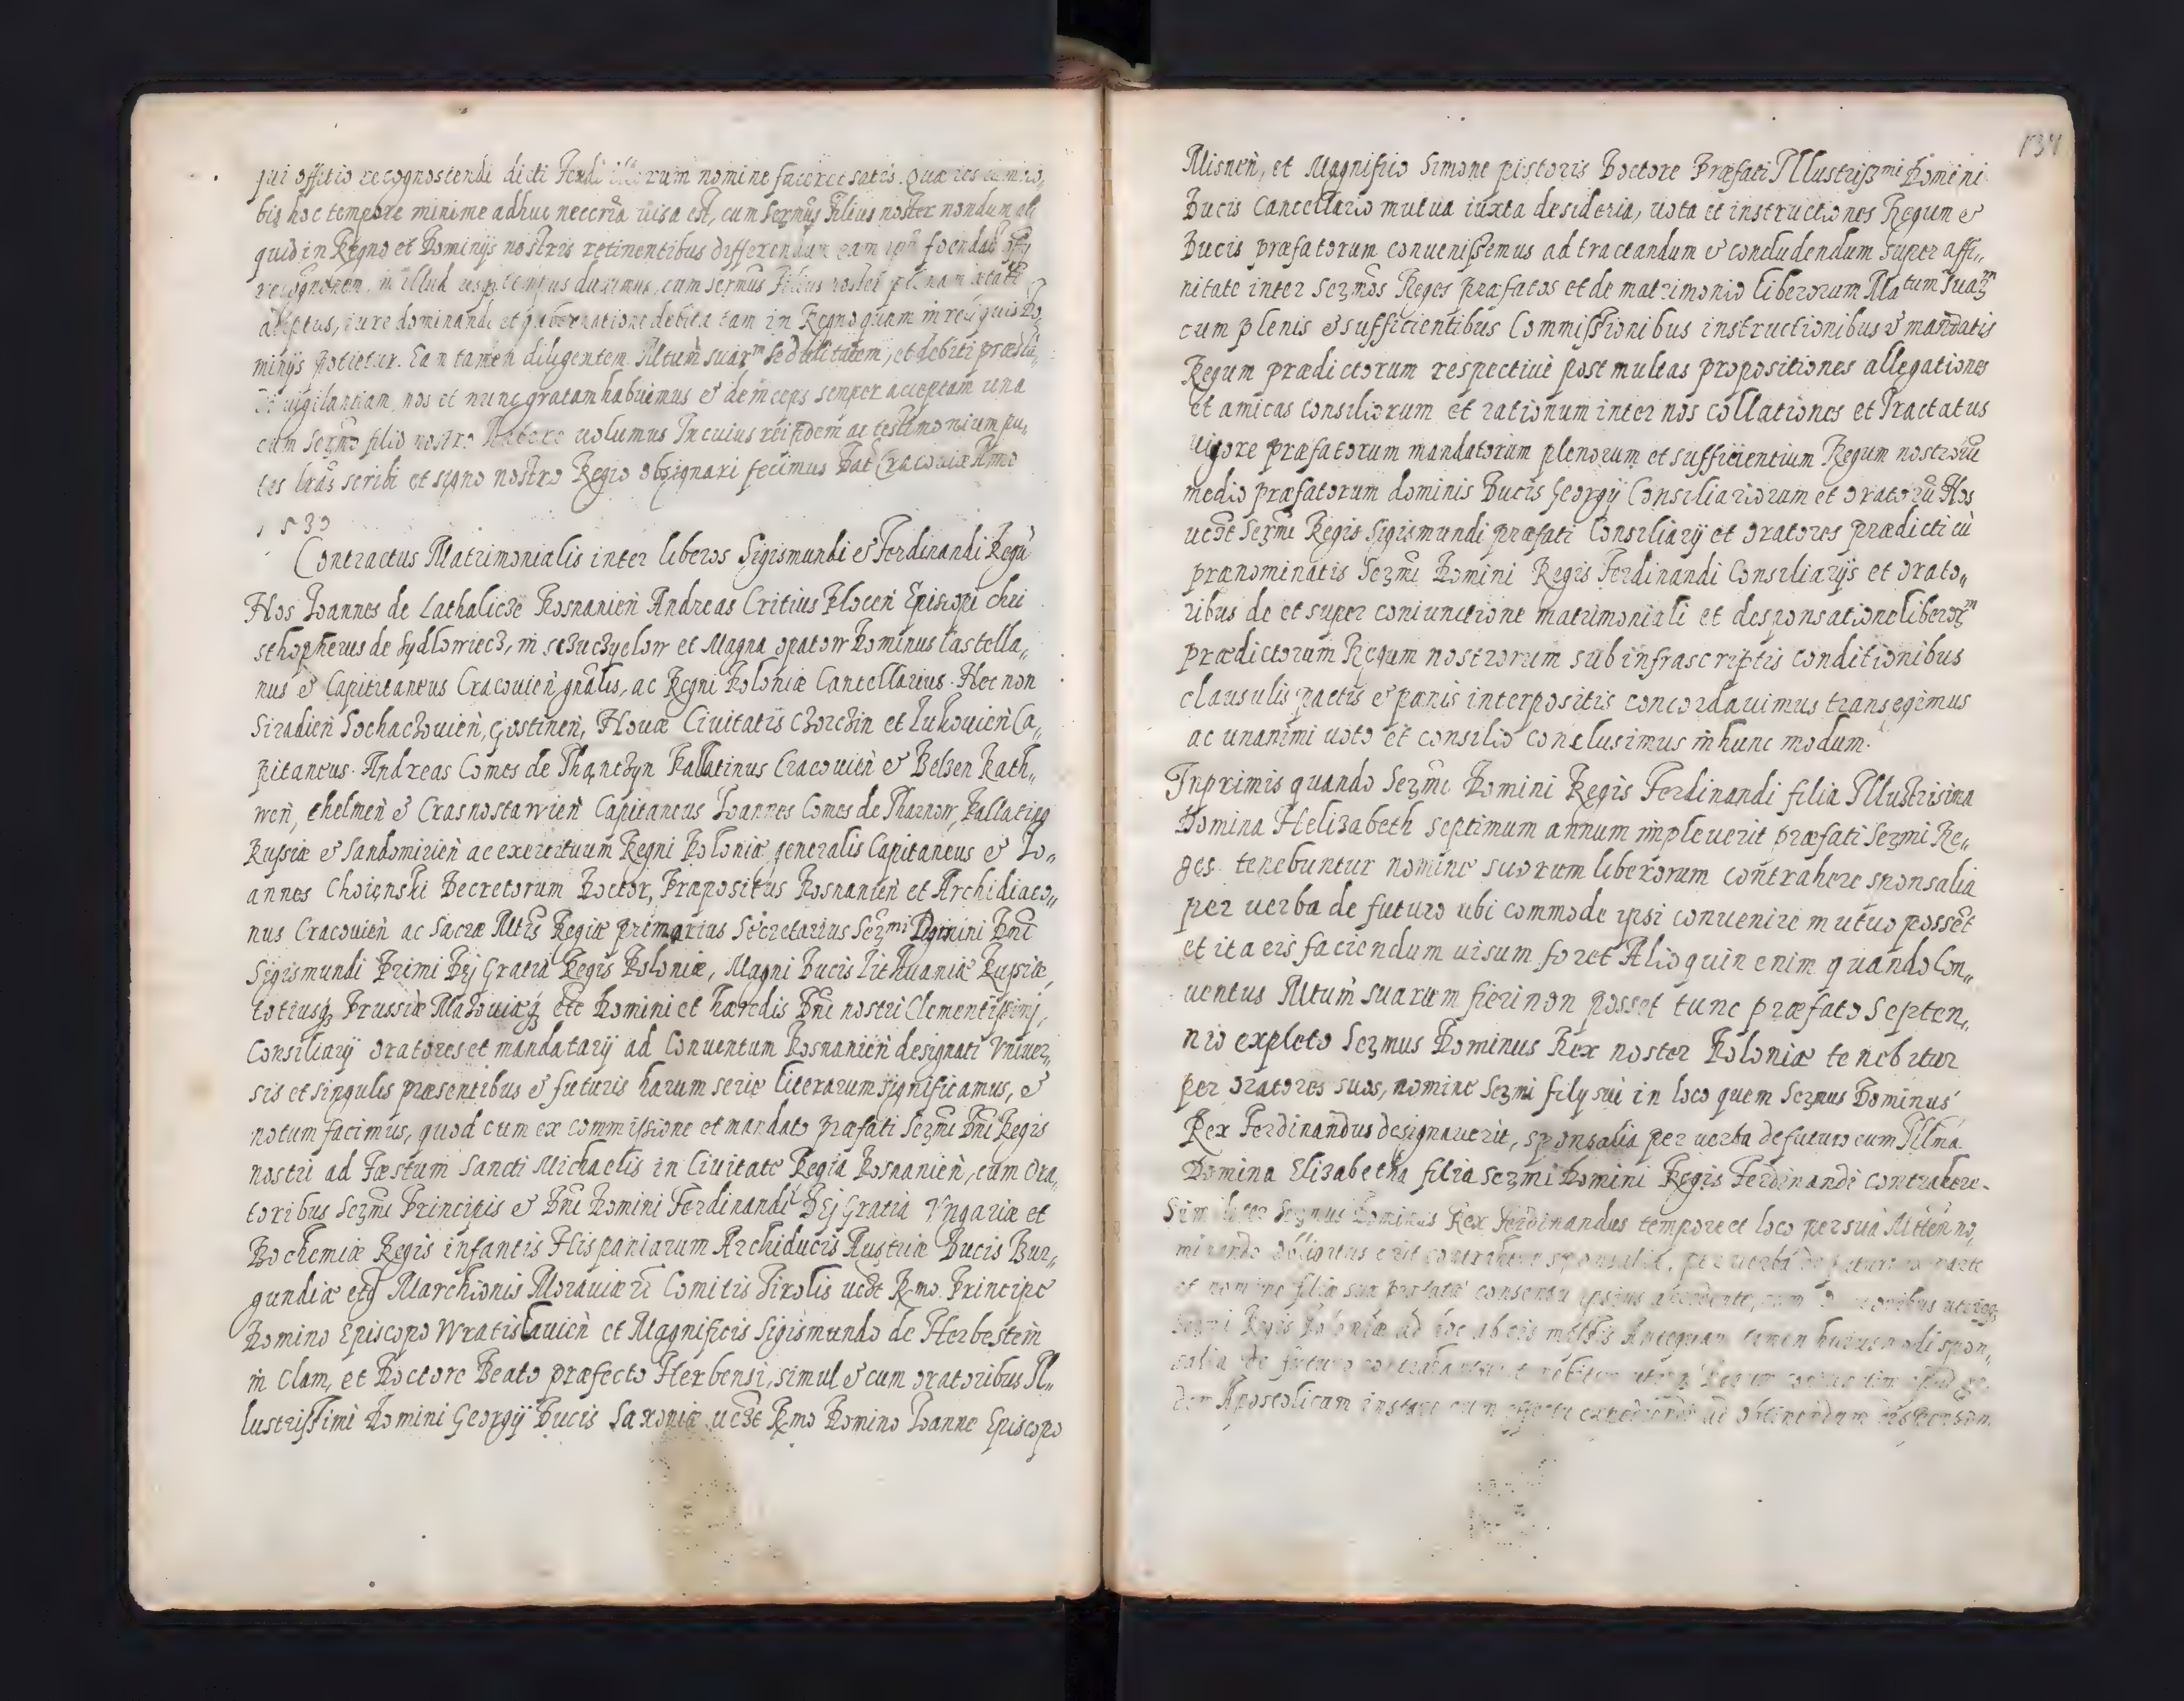 qui offitio recognoscendi dicti Feudi illorum nomine faceret satis. Quæ res cum no„
bis hoc tempore minime adhuc neccria uisa est, cum Sermus Filius noster nondum ali
quid in Regno et Dominijs nostris retinentibus differendam eam
recognonem, in illud usq tempus duximus, cum sermus Filius noster plenam ætate
adeptus, iure dominandi et gubernatione debita tam in Regno quam in reliquis Do„
minijs potietur. Ean tamen diligentem Mtum suarm sedulitatem, et debiti præsta„
uigilantiam, nos et nunc gratam habuimus & deinceps semper acceptam una
cum Sermo filio nostro habere uolumus In cuius rei fidem ac testimonium pu„
tes lras scribi et signo nostro Regio obsignari fecimus Dat Cracouiæ Anno
1530
Contractus Matrimonialis inter liberos Sigismundi & Ferdinandi Regu
Nos Ioannes de Lathalicze Posnanien Andreas Critius Plocen Episcopi chri
sthopherus de Sydlowiecz, in sczuczyelow et Magna opatow Dominus Castella„
nus & Capitaneus Cracouien gnalis, ac Regni Poloniæ Cancellarius. Nec non
Siradien Sochaczouien, Gostinen, Nouæ Ciuitatis Chorczin et Lukouien Ca„
pitaneus. Andreas Comes de Thanczyn Pallatinus Cracouien & Belzen Rath„
nen, chelmen & Crasnostawien Capitaneus Ioannes Comes de Tharnow, Pallating
Russiæ & Sandomirien ac exercituum Regni Poloniæ generalis Capitaneus & Io„
annes Choienski Decretorum Doctor, Præpositus Posnanien et Archidiaco„
nus Cracouien ac Sacræ Mtis Regiæ primarius Secretarius Sermi Domini Dni
Sigismundi Primi Dej Gratia Regis Poloniæ, Magni Ducis Lithuaniæ Russiæ,
totiusq Prussiæ Mazouiæq etc Domini et hæredis Dni nostri Clementissimj,
Consiliarij oratores et mandatarij ad Conuentum Posnanien designati Vniuer„
sis et singulis præsentibus & futuris harum serie literarum significamus, &
notum facimus, quod cum ex commissione et mandato præfati Sermi Dni Regis
nostri ad Fæstum Sancti Michaelis in Ciuitate Regia Posnanien, cum Ora„
toribus Sermi Principis & Dni Domini Ferdinandi Dej Gratia Vngariæ et
Bochemiæ Regis infantis Hispaniarum Archiducis Austriæ Ducis Bur„
gundiæ etq Marchionis Morauiæ Comitis Tirolis uedt Rmo Principe
Domino Episcopo Wratislauien et Magnificis Sigismundo de Herbestein
in Clam, et Doctore Beato præfecto Herbensi, simul & cum oratoribus Il„
lustrissimi Domini Georgij Ducis Saxoniæ uedt Rmo Domino Ioanne Episcopo
Misnen, et Magnifico Simone pistoris Doctore Præfati Illustrissmi Domini
Ducis Cancellario mutua iuxta desideria, uota et instructiones Regum &
Ducis præfatorum conuenissemus ad tractandum & concludendum super affi„
nitate inter Sermos Reges præfatos et de matrimonio liberorum Matum suarm
cum plenis & sufficientibus Commissionibus instructionibus & mandatis
Regum prædictorum respectiue post multas propositiones allegationes
et amicas consiliorum et rationum inter nos collationes et Tractatus
uigore præfatorum mandatorum plenorum et sufficientium Regum nostroru
medio præfatorum dominis Ducis Georgij Consiliariorum et oratoru Nos
uedt Sermi Regis Sigismundi præfati Consiliarij et oratores prædicti cu
prænominatis Sermi Domini Regis Ferdinandi Consiliarijs et orato„
ribus de et super coniunctione matrimoniali et desponsatione liberorm
prædictorum Regum nostrorum sub infrascriptis conditionibus
clausulis pactis & pænis interpositis concordauimus transegimus
ac unanimi uoto et consilio conclusimus in hunc modum.
Inprimis quando Sermi Domini Regis Ferdinandi filia Illustrisima
Domina Helizabeth septimum annum impleuerit præfati Sermi Re„
ges tenebuntur nomine suorum liberorum contrahere sponsalia
per uerba de futuro ubi commode ipsi conuenire mutuo posset
et ita eis faciendum uisum foret Alioquin enim quando Con„
uentus Mtum suarum fieri non posset tunc præfato Septen„
nio expleto Sermus Dominus Rex noster Poloniæ tenebitur
per oratores suos, nomine Sermi filij sui in loco quem Sermus Dominus
Rex Ferdinandus designauerit, sponsalia per uerba de futuro cum Illma
Domina Elizabetha filia Sermi Domini Regis Ferdinandi contrahere.
Similiter Sermus Dominus Rex Ferdinandus tempore et loco per sua Mttem no„
minando obligatus erit contrahere sponsalia, per uerba de futuro parte
et nomine filiæ suæ præfatæ consensu ipsius accedente, cum oratoribus utriqq
Sermi Regis Poloniæ ad hoc ab eis missis Antequam tamen huiusmodi spon„
salia de futuro contrahantur tenebitur uterq Regum communiter apud Se„
dem Apostolicam instare cum effectu expedienda ad obtinendam dispensam